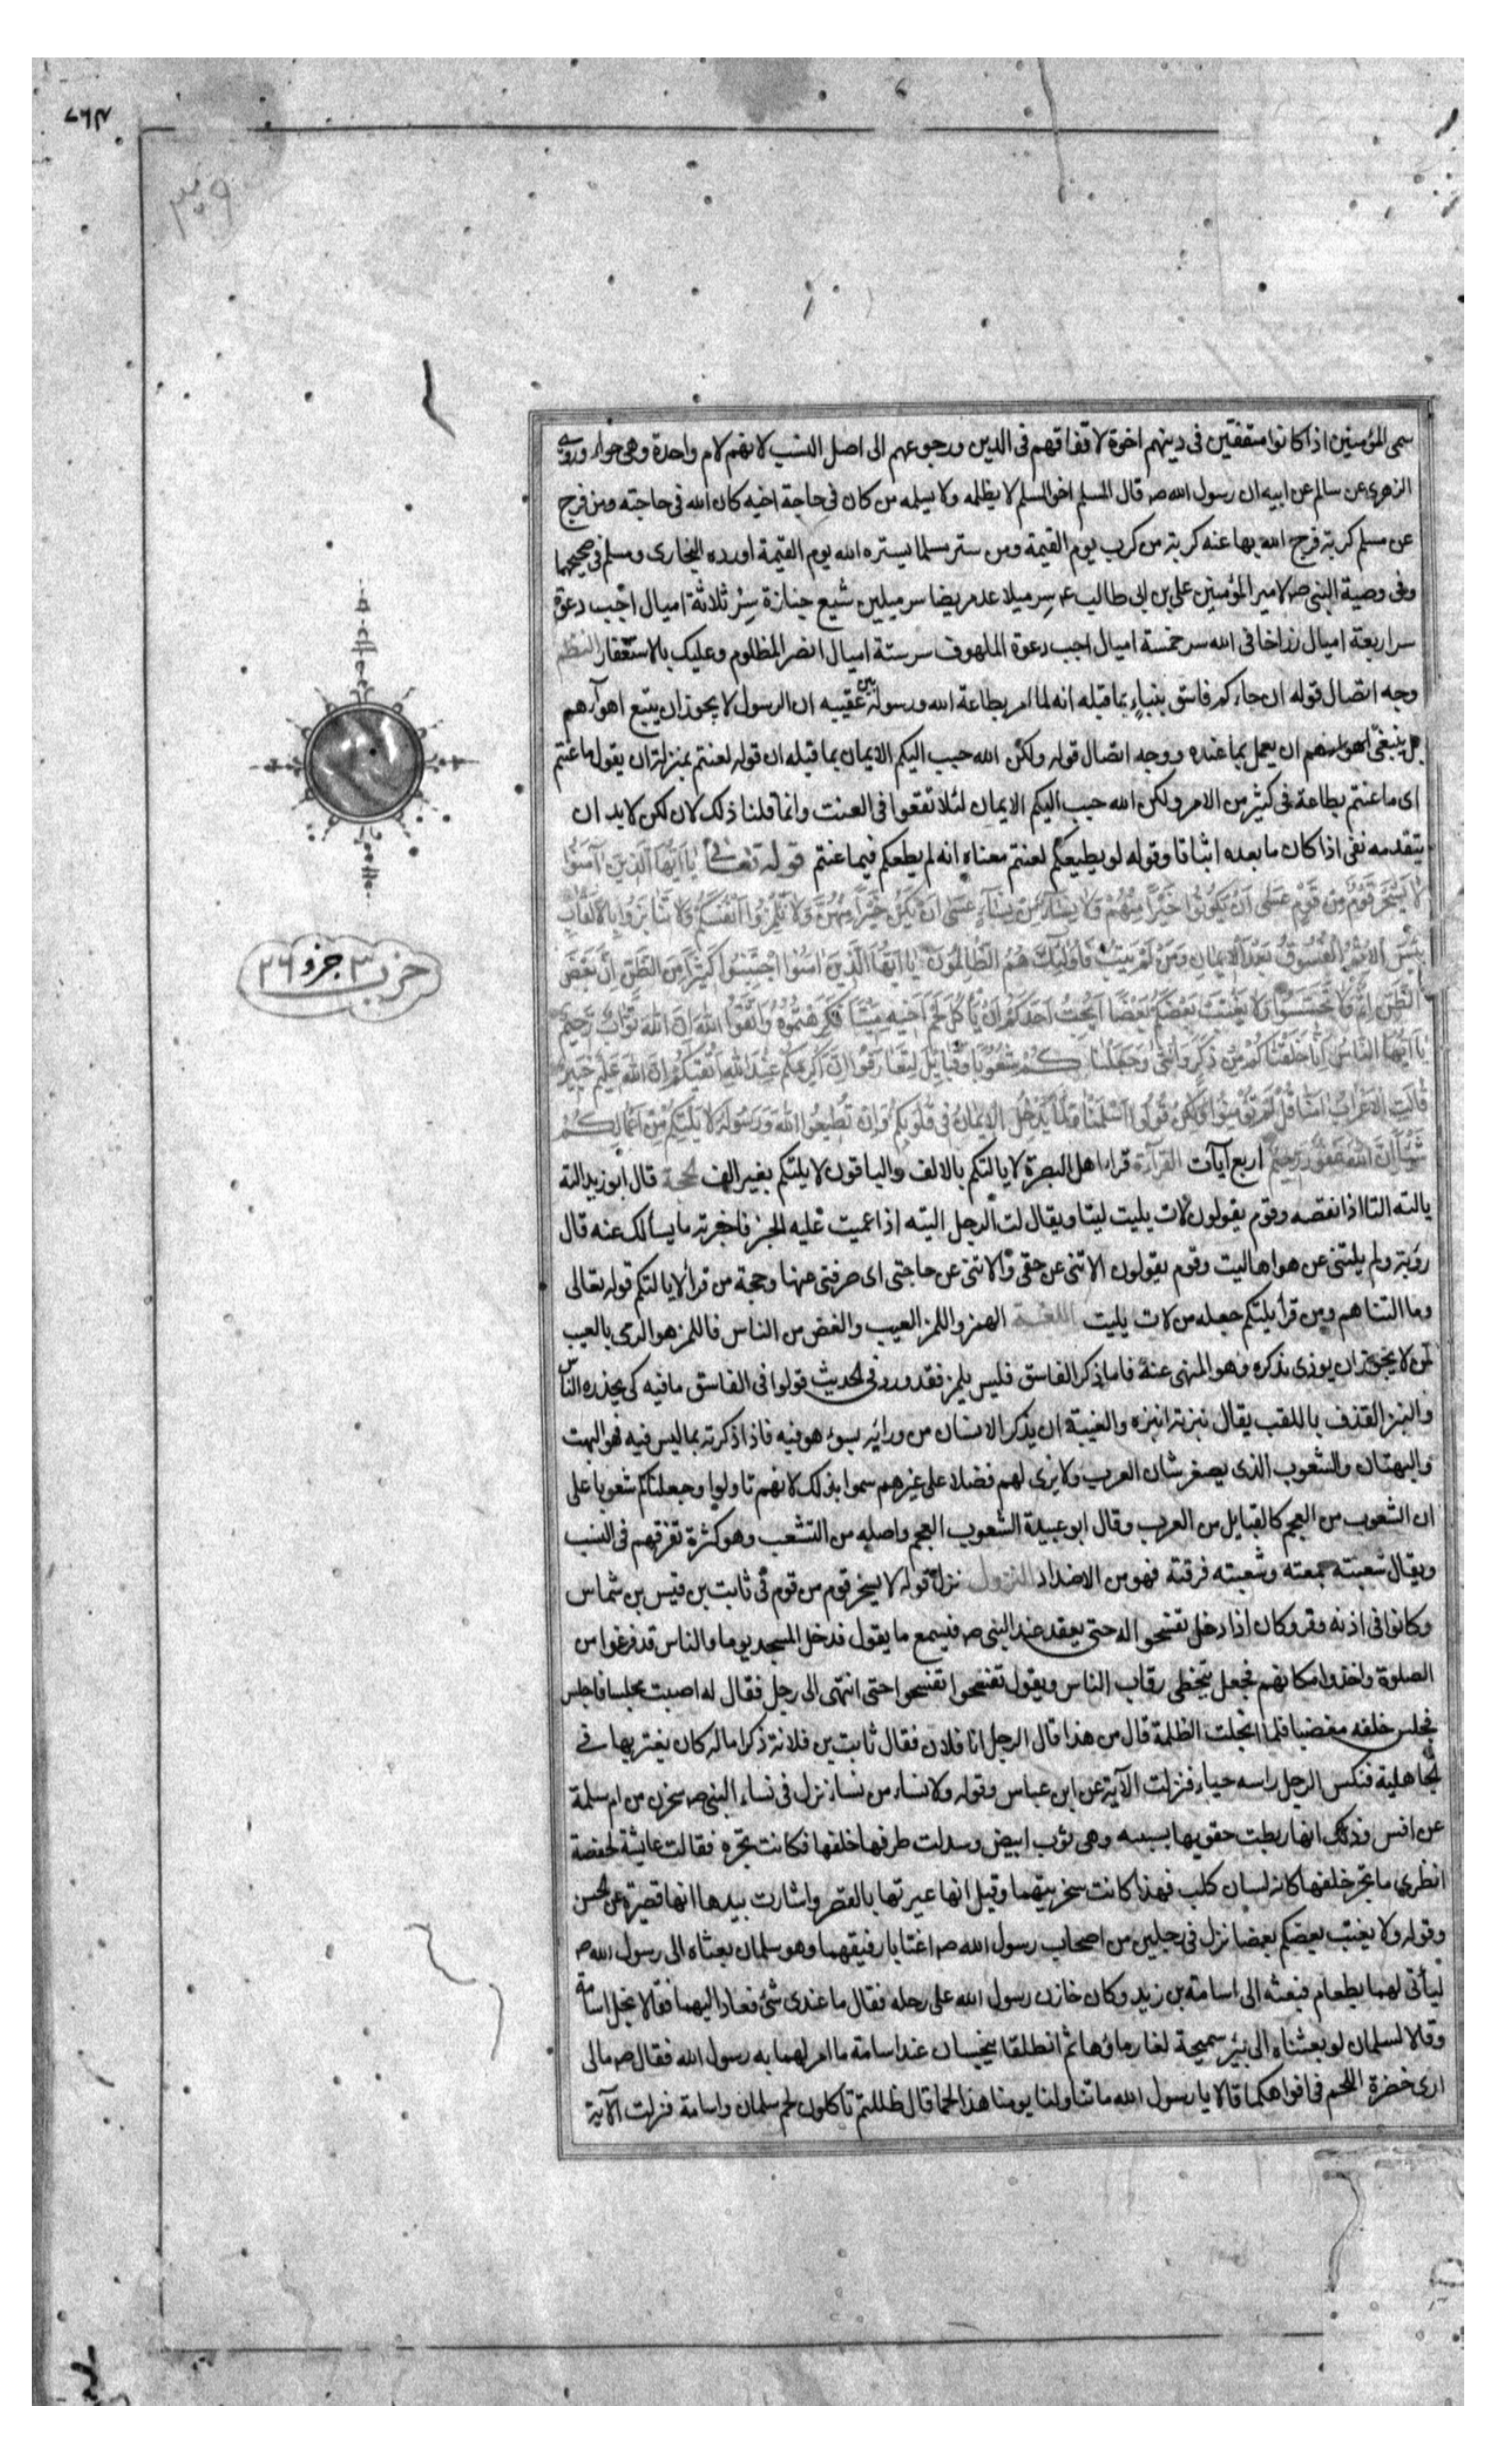 سمى المؤمنين اذا كانوا متفقين فى دينهم اخوة لاتفاقهم فى الدين ورجوعهم الى اصل النسب لانهم لام واحدة وهى حواء وروى
الزهرى عن سالم عن ابيه ان رسول الله ص قال المسلم اخو المسلم لا يظلمه ولا يسلمه من كان فى حاجة اخيه كان الله فى حاجته ومن فرج
عن مسلم كربة فرج الله بها عنه كربة من كرب يوم القيمة ومن ستر مسلما يستره الله يوم القيمة اورده البخارى ومسلم فى صحيحهما
وفى وصية النبى ص لامير المؤمنين على بن ابى طالب ع سر ميلا عد مريضا سر ميلين شيع جنازة سر ثلاثة اميال اجب دعوة
سر اربعة اميال زر اخا فى الله سر خمسة اميال اجب دعوة الملهوف سر ستة اميال انصر المظلوم وعليك بالاستغفار النظم
وجه اتصال قوله ان جاءكم فاسق بنباء بما قبله انه لما امر بطاعة الله ورسوله بين عقيبه ان الرسول لا يجوز ان يتبع اهوآءهم
بل ينبغى ان يعمل بما عنده ووجه اتصال قوله ولكن الله حبب اليكم الايمان بما قبله ان قوله لعنتم بمنزلة ان يقول ما عنتم
اى ما عنتم بطاعة فى كثير من الامر ولكن الله حبب اليكم الايمان لئلا تقعوا فى العنت وانما قلنا ذلك لان لكن لا بد ان
يتقدمه نفى اذا كان ما بعده اثباتا وقوله لو يطيعكم لعنتم معناه انه لم يطعكم فيما عنتم قوله تعالى يا ايها الذين آمنوا
لا يسخر قوم من قوم عسى ان يكونوا خيرا منهم ولا نساء من نساء عسى ان يكن خيرا منهن ولا تلمزوا انفسكم ولا تنابزوا بالالقاب
بئس الاسم الفسوق بعد الايمان ومن لم يتب فاولئك هم الظالمون يا ايها الذين امنوا اجتنبوا كثيرا من الظن ان بعض
الظن اثم ولا تجسسوا ولا يغتب بعضكم بعضا ايحب احدكم ان يأكل لحم اخيه ميتا فكرهتموه واتقوا الله ان الله تواب رحيم
يا ايها الناس انا خلقناكم من ذكر وانثى وجعلناكم شعوبا وقبايل لتعارفوا ان اكرمكم عند الله اتقيكم ان الله عليم خبير
قالت الاعراب امنا قل لم تؤمنوا ولكن قولوا اسلمنا ولما يدخل الايمان فى قلوبكم وان تطيعوا الله ورسوله لا يلتكم من اعمالكم
شيئا ان الله غفور رحيم اربع آيات القرآءة قرا اهل البصرة لا يالتكم بالالف والباقون لا يلتكم بغير الف الحجة قال ابو زيد الته
يالته التا اذا نقصه وقوم يقولون لات يليت ليتا ويقال لت الرجل اليته اذا عميت عليه الخبر فاخبرته ما يسالك عنه قال
رؤبة ولم يلتنى عن هواها ليت وقوم يقولون الاتنى عن حقى والاتنى عن حاجتى اى صرفنى عنها وحجة من قرأ لا يالتكم قوله تعالى
وما التناهم ومن قرأ يلتكم جعله من لات يليت اللغة الهمز واللمز العيب والغض من الناس فاللمز هو الرمى بالعيب
لمن لا يجوز ان يوذى بذكره وهو المنهى عنه فاما ذكر الفاسق فليس بلمز فقد ورد فى الحديث قولوا فى الفاسق ما فيه كى يحذره الناس
والنبز القذف باللقب يقال نبزته انبزه والغيبة ان يذكر الانسان من ورائه بسوء هو فيه فاذا ذكرته بما ليس فيه فهو البهت
والبهتان والشعوب الذى يصغر شان العرب ولا يرى لهم فضلا على غيرهم سموا بذلك لانهم تاولوا وجعلناكم شعوبا على
ان الشعوب من العجم كالقبايل من العرب وقال ابو عبيدة الشعوب العجم واصله من التشعب وهو كثرة تفرقهم فى النسب
ويقال شعبته جمعته وشعبته فرقته فهو من الاضداد النزول نزل قوله لا يسخر قوم من قوم فى ثابت بن قيس بن شماس
وكانوا فى اذنه وقر وكان اذا دخل تفسحوا له حتى يقعد عند النبى ص فيسمع ما يقول فدخل المسجد يوما والناس قد فرغوا من
الصلوة واخذوا مكانهم فجعل يتخطى رقاب الناس ويقول تفسحوا تفسحوا حتى انتهى الى رجل فقال له اصبت مجلسا فاجلس
فجلس خلفه مغضبا فلما انجلت الظلمة قال من هذا قال الرجل انا فلان فقال ثابت بن فلانة ذكر اما له كان يعير بها فى
الجاهلية فنكس الرجل راسه حياء فنزلت الآية عن ابن عباس وقوله ولا نساء من نساء نزل فى نساء النبى ص سخرن من ام سلمة
عن انس وذلك انها ربطت حقويها بسبنية وهى ثوب ابيض وسدلت طرفها خلفها فكانت تجره فقالت عايشة لحفصة
انظرى ما تجر خلفها كانه لسان كلب فهذا كانت سخريتهما وقيل انها عيرتها بالقصر واشارت بيدها انها قصيرة عن الحسن
وقوله ولا يغتب بعضكم بعضا نزل فى رجلين من اصحاب رسول الله ص اغتابا رفيقهما وهو سلمان بعثاه الى رسول الله ص
ليأتى لهما بطعام فبعثه الى اسامة بن زيد وكان خازن رسول الله على رحله فقال ما عندى شئ فعاد اليهما فقالا بخل اسامة
وقالا لسلمان لو بعثناه الى بئر سميحة لغار ماؤها ثم انطلقا يتجسسان عند اسامة ما امر لهما به رسول الله فقال ص ما لى
ارى خضرة اللحم فى افواهكما قالا يا رسول الله ما تناولنا يومنا هذا لحما قال ظللتم تأكلون لحم سلمان واسامة فنزلت الآية
حزب ٣ جزو ٢٦